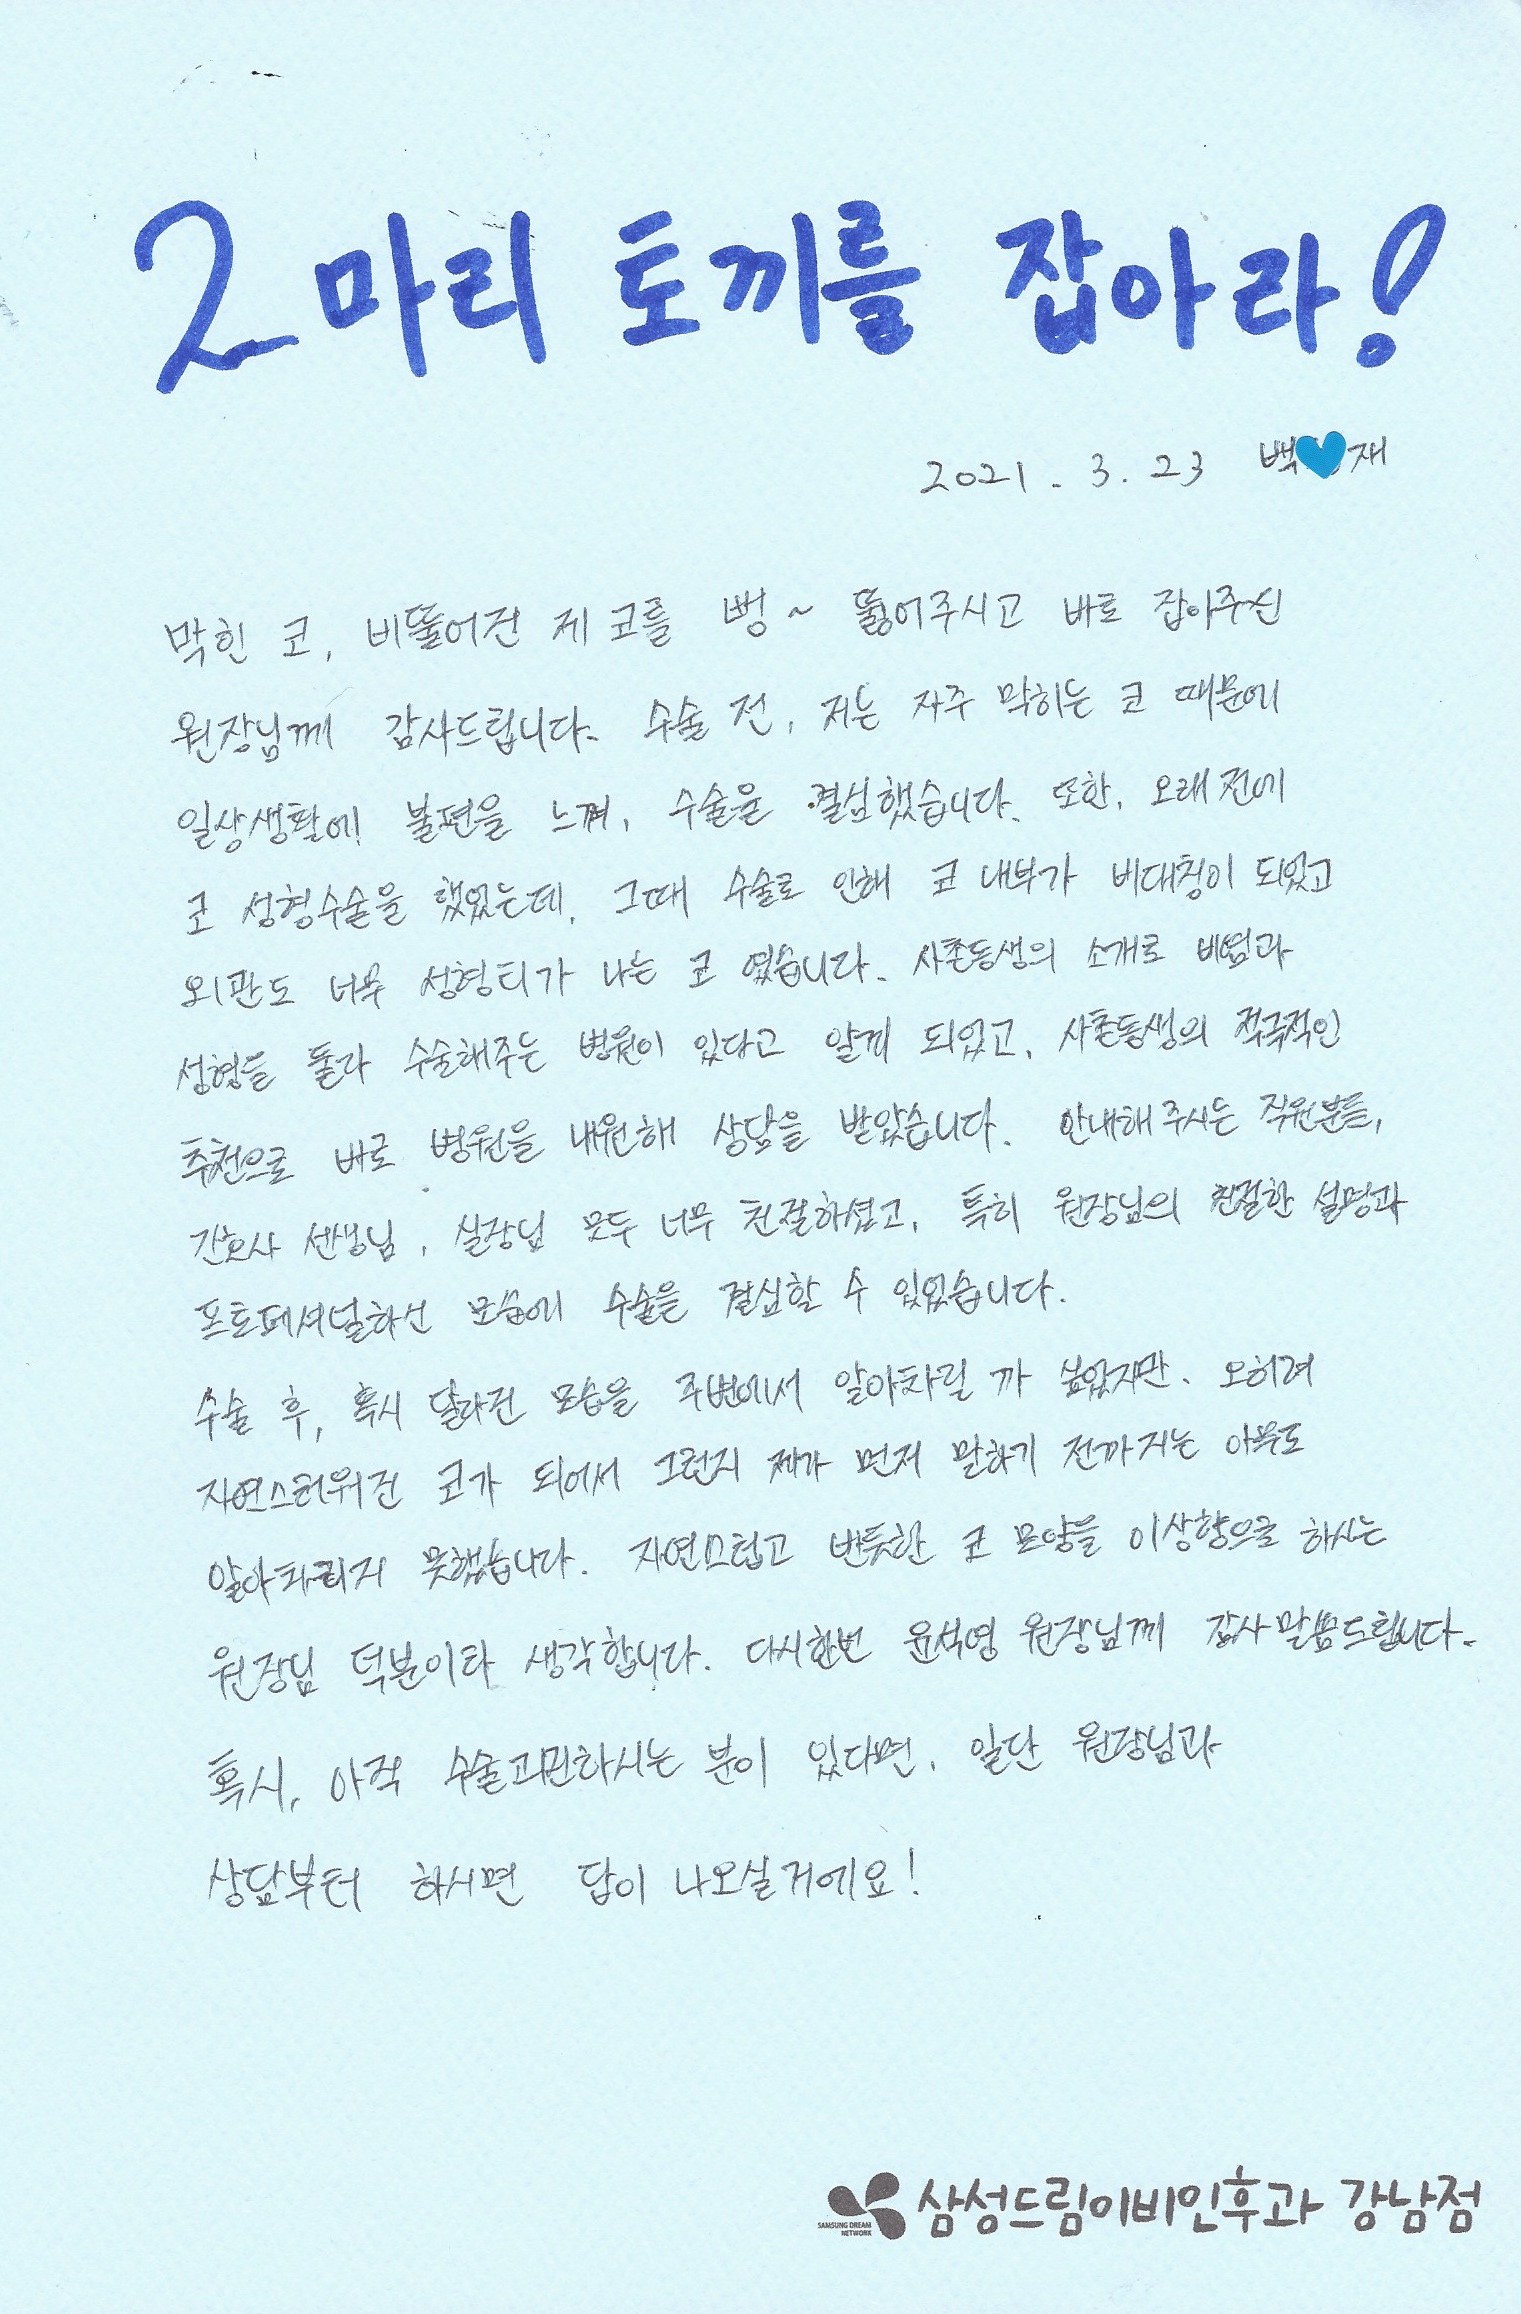 2마리 토끼를 잡아라!
2021. 3. 23 백 재
막힌 코, 비뚤어진 제 코를 뻥~ 뚫어주시고 바로 잡아주신
원장님께 감사드립니다. 수술 전, 저는 자주 막히는 코 때문에
일상생활에 불편을 느껴, 수술을 결심했습니다. 또한, 오래전에
코 성형수술을 했었는데, 그때 수술로 인해 코 내부가 비대칭이 되었고
외관도 너무 성형티가 나는 코 였습니다. 사촌동생의 소개로 비염과
성형을 둘다 수술해주는 병원이 있다고 알게 되었고, 사촌동생의 적극적인
추천으로 바로 병원을 내원해 상담을 받았습니다. 안내해주시는 직원분들,
간호사 선생님, 실장님 모두 너무 친절하셨고, 특히 원장님의 친절한 설명과
프로페셔널하신 모습에 수술을 결심할 수 있었습니다.
수술 후, 혹시 달라진 모습을 주변에서 알아차릴 까 싶었지만, 오히려
자연스러워진 코가 되어서 그런지 제가 먼저 말하기 전까지는 아무도
알아차리지 못했습니다. 자연스럽고 반듯한 코 모양을 이상향으로 하시는
원장님 덕분이라 생각합니다. 다시한번 윤석영 원장님께 감사말씀드립니다.
혹시, 아직 수술고민하시는 분이 있다면, 일단 원장님과
상담부터 하시면 답이 나오실거에요!
SAMSUNG DREAM NETWORK 삼성드림이비인후과 강남점